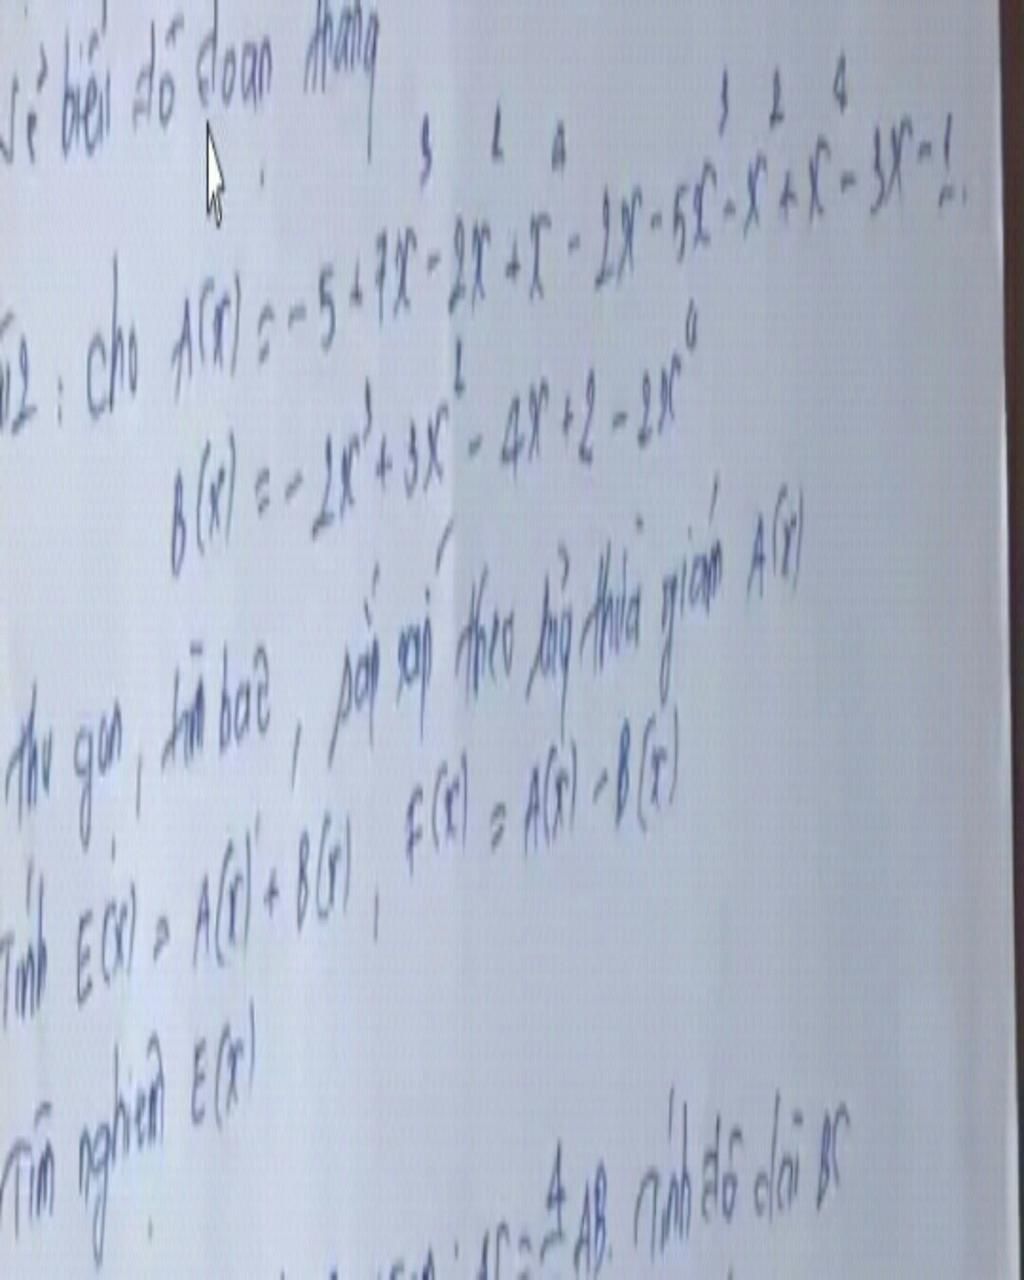 vẽ biểu đồ đoạn thẳng
2: cho A(x) = -5 + 7x³ - 2x² + x⁴ - 2x - 5x³ - x² + x⁴ - 3x - 1.
B(x) = -2x³ + 3x² - 4x + 2 - 2x⁴
thu gọn, tìm bậc, sắp xếp theo lũy thừa giảm A(x)
Tính E(x) = A(x) + B(x), F(x) = A(x) - B(x)
Tìm nghiệm E(x)
AB. Tính độ dài BC